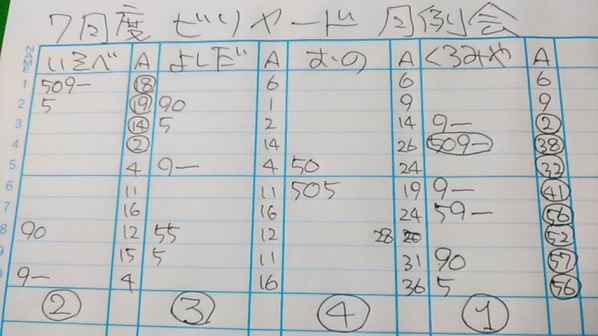 7月度 ビリヤード 月例会
NAME いそべ A よしだ A おの A くるみや A
1 509- 18 6 6 6
2 5 19 90 1 9 9
3 14 5 2 14 9- 2
4 2 14 26 509- 38
5 4 9- 4 50 24 32
6 11 11 505 19 9- 41
7 16 16 24 59- 56
8 90 12 55 12 28 52
9 15 5 11 31 90 57
9- 4 16 36 5 56
② ③ ④ ①